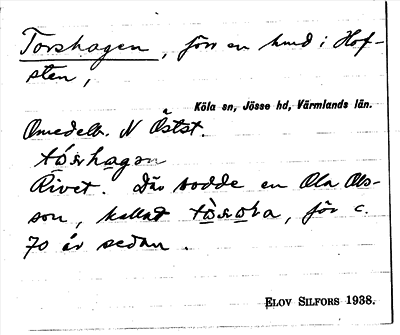 Torshagen, förr en hmd i Hof-
sten,
Köla sn, Jösse hd, Värmlands län.
Omedelb. N Östst.
tó̱ṣhagən
Rivet. Där bodde en Ola Ols-
son, kallad, för c.
70 år sedan.
ELOV SILFORS 1938.